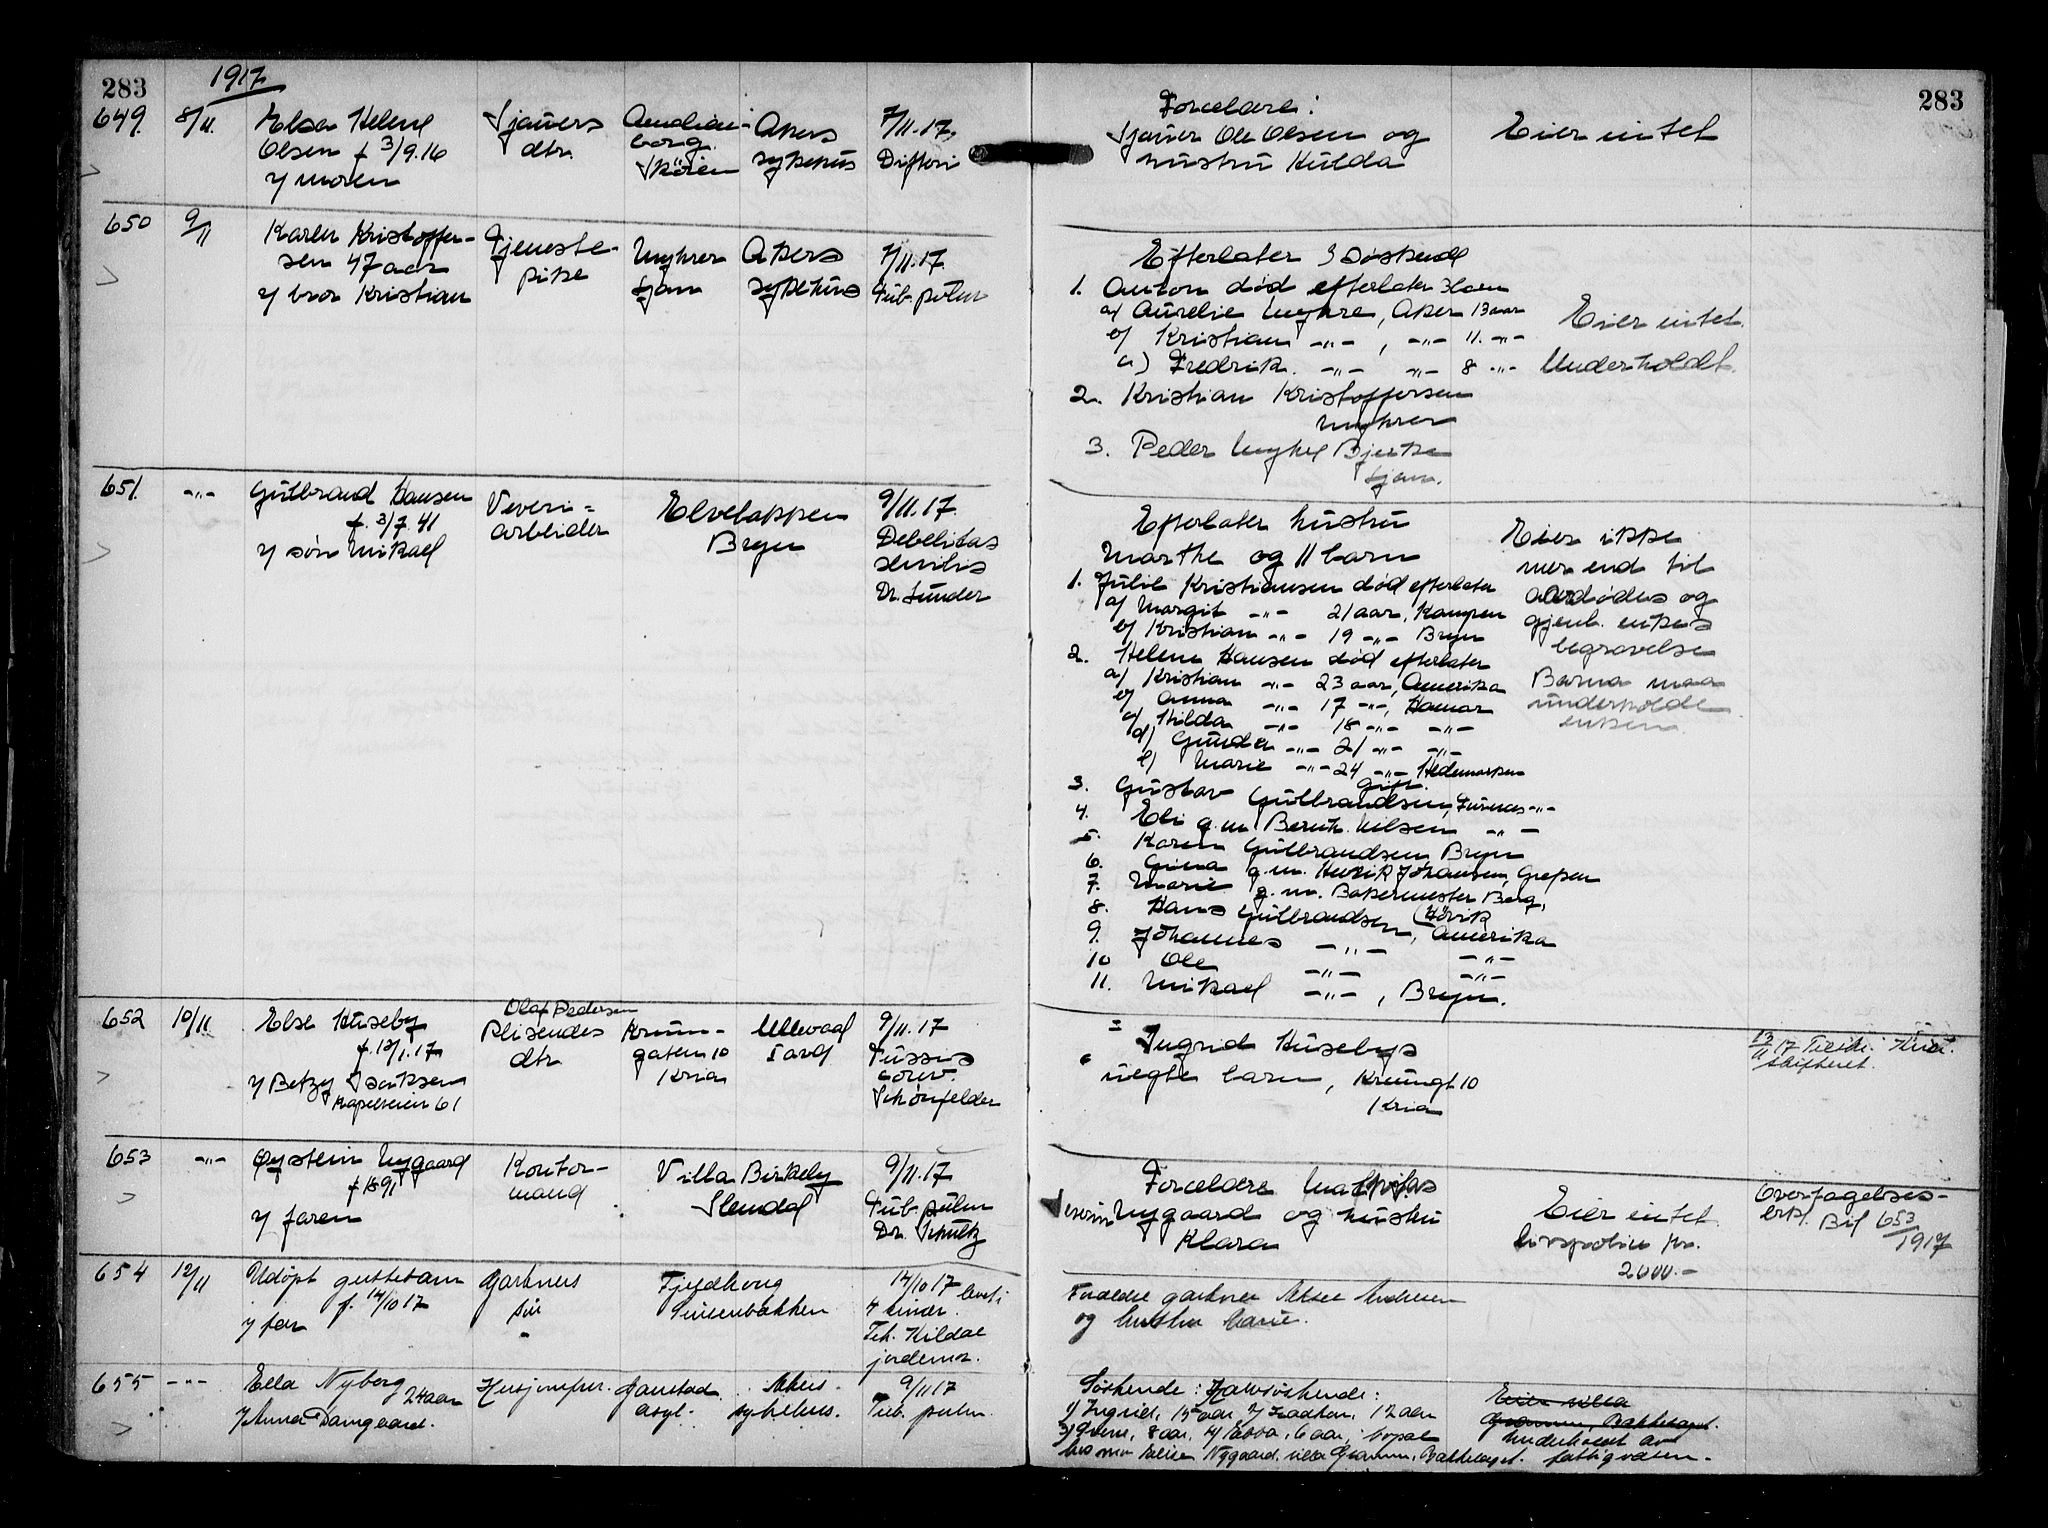 283
1917
283
649. 8/11.
Elsa Helene
Olsen f 3/9.16
v/ moren
Sjauers
dtr.
borg.
Skøien
Akers
sykehus
7/11.17.
Difteri
Forældre:
Sjauer Ole Olsen og
hustru Hulda
Eier intet
650 9/11
Karen Kristoffer-
sen 47 aar
v/ bror Kristian
Tjeneste-
pike
Myhrer
Ljan
Akers
sykehus
7/11.17.
Tub. pulm
Efterlater 3 søskende
1. Anton død efterlater 3 barn
a/ Aurelie Myhre, Aker 13 aar
b/ Kristian -"- , -"- 11. -"-
c) Fredrik. -"- -"- 8 -"-
2. Kristian Kristoffersen
Myhrer
3. Peder Myhre Bjerke
Ljan.
Eier intet.
Underholdt.
651. -"-
Gulbrand Hansen
f. 3/7.41
v/ søn Mikael
Veveri=
arbeider
Elvelappen
Bryn
9/11.17.
Debelitas
senilis
Dr. Lunder
Efterlater hustru
Marthe og 11 barn
1. Julie Kristiansen død efterlater
a/ Margit -"- 21 aar, Kampen
b/ Kristian -"- 19 -"- Bryn
2. Helene Hansen død efterlater
a/ Kristian -"- 23 aar, Amerika
b/ Anna -"- 17 -"-, Hamar
c/ Hilda -"- 18 -"- -"-
d/ Gunda -"- 21 -"- -"-
e) Marie -"- 24 -"- Hedemarken
gift.
3. Gustav Gulbrandsen, Furnes -"-
4. Eli g.m. Bernh. Nilsen -"-
5. Karen Gulbrandsen Bryn
6. Gina g.m. Henrik Johansen, Grefsen
7. Marie g.m. Bakermester Berg,
(Høvik
8. Hans Gulbrandsen, Amerika
9. Johannes -"- -"-
10 Ole -"- -"-
11. Mikael -"- , Bryn.
Eier ikke
mer end til
avdødes og
gjenl. enkes
begravelse
Barna maa
underholde
enken.
652 10/11
Else Huseby
f. 12/1.17
v/ Betzy Isaksen
Kapelveien 61
Olaf Pedersen
Plisendes
dtr
Krum-
gaten 10
Kria
Ullevaal
9/11.17
Tussis
conv.
Schønfelder
Ingrid Husebys
uegte barn, Krumgt 10
Kria
13/11 17 Kria.
skifteret.
653 -"-
Øystein Nygaard
f 1891
v/ faren
Kontor-
mand
Villa Birkely
Slemdal
9/11.17
Tub. pulm
Dr. Schultz
Forældre Mathias
Nygaard og hustru
Klara
Eier intet.
Livspolice kr.
2000.-
Overtagelses-
erkl. Bil 653/1917
654 12/11
Udøpt guttebarn
f. 14/10 17
v/ far
Gartners
søn
Fjeldhoug
Sinsenbakken
14/10 17
4 timer.
Kildal
jordemor.
Forældre gartner Aksel Andresen
og hustru Marie.
655 -"-
Ella Nyborg
24 aar
v/ Anna Damgaard.
Husjomfru.
Gaustad
asyl.
Akers
sykehus.
9/11 17
Tub. pulm.
Søskende: Halvsøskende:
1/ Ingrid, 15 aar 2/ Haakon, 12 aar
3/ Sverre, 8 aar, 4/ Ebba, 6 aar, bopæl
hos mor Elise Nygaard, villa Granum, Bakkehaget.
Eier villa
Granum, Bakkehaget.
Underholdt av
fattigvæsen.